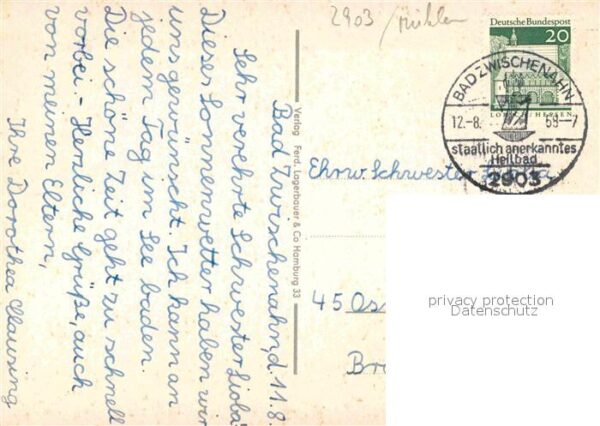 2903 / Mühlen
Deutsche Bundespost
20
LORSCH/HESSEN
BAD ZWISCHENAHN
12.-8. 69.-7
staatlich anerkanntes
Heilbad
2903
Bad Zwischenahn, d. 11.8.
Sehr verehrte Schwester Lioba!
Dieser Sonnenwetter haben wir
uns gewünscht. Ich kann an
jedem Tag im See baden.
Die schöne Zeit geht zu schnell
vorbei - Herzliche Grüße, auch
von meinen Eltern,
Ihre Dorothea Clausing
Verlag Ferd. Lagerbauer & Co Hamburg 33
Ehrw. Schwester
45 Os
Br
privacy protection
Datenschutz